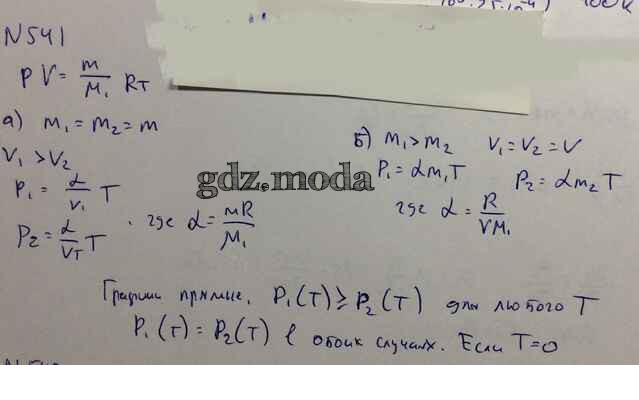 N541
PV = m/M₁ RT
а) m₁ = m₂ = m
V₁ > V₂
P₁ = α/V₁ T
P₂ = α/VT T · где α = mR/M₁
б) m₁ > m₂ V₁ = V₂ = V
P₁ = αm₁T P₂ = αm₂T
где α = R/VM₁
gdz.moda
Графики прямые, P₁(T) ≥ P₂(T) для любого T
P₁(T) = P₂(T) в обоих случаях. Если T=0